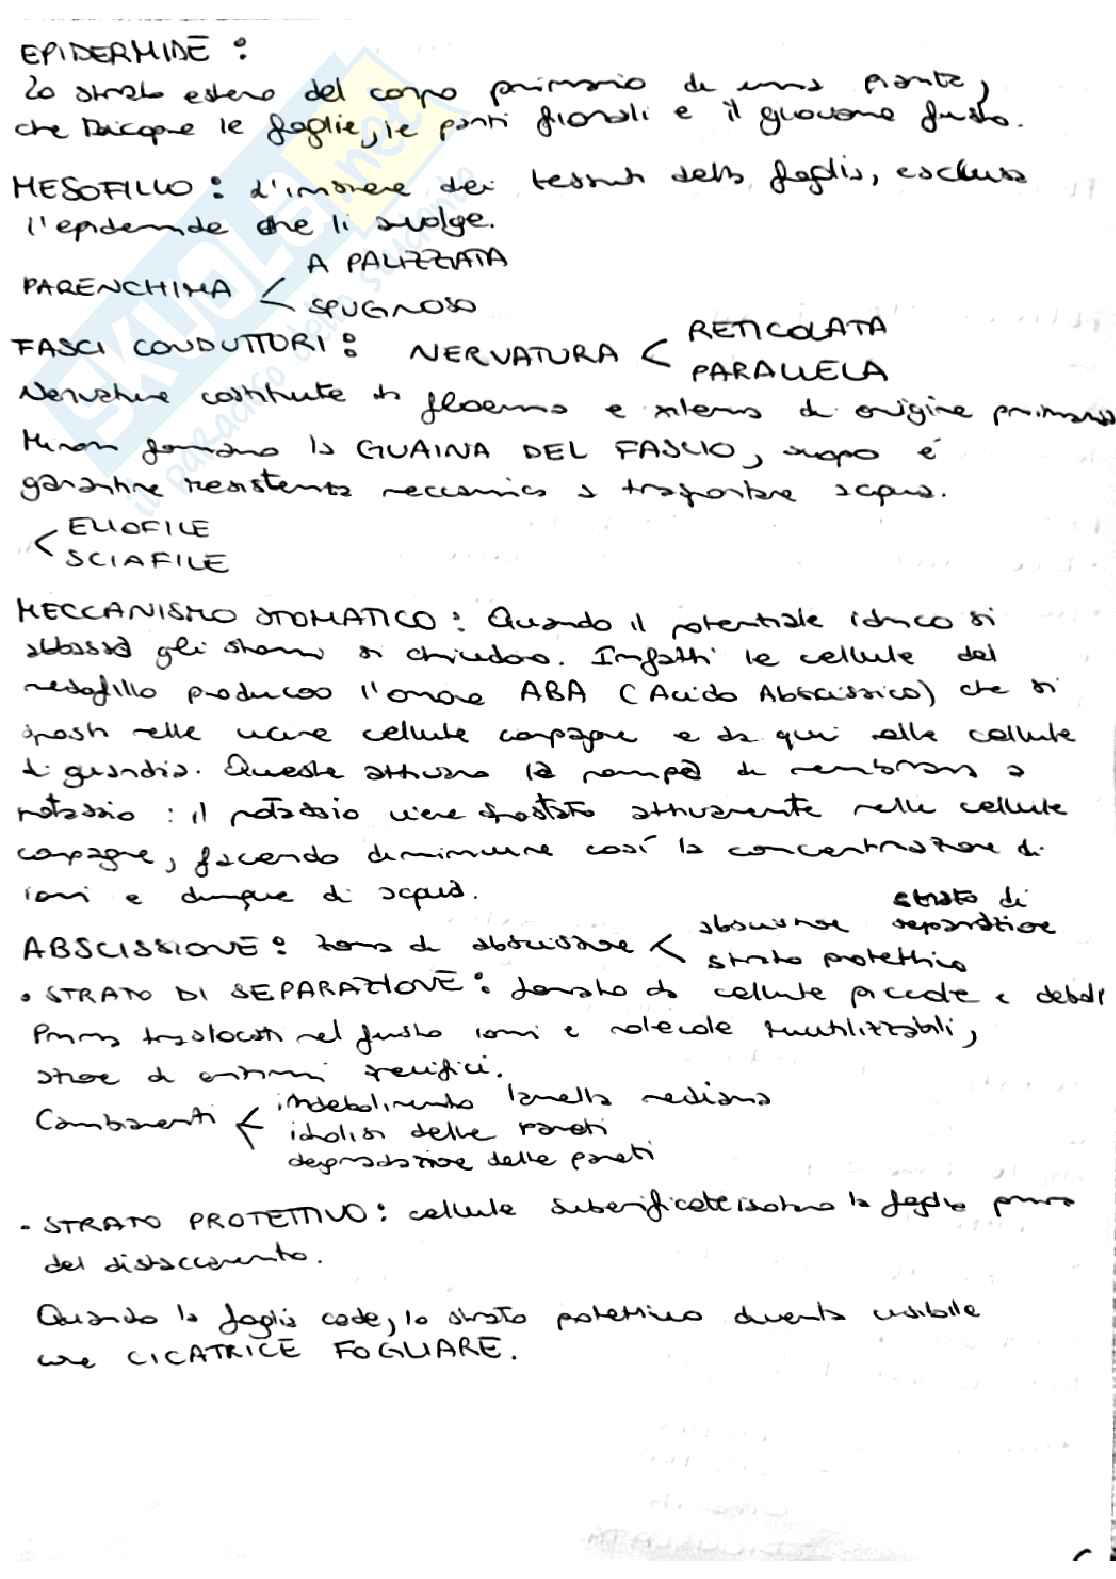 EPIDERMIDE :
Lo strato esterno del corpo primario di una pianta,
che ricopre le foglie, le parti fiorali e il giovane fusto.
MESOFILLO : L'insieme dei tessuti della foglia, esclusa
l'epidermide che li avvolge.
PARENCHIMA < A PALIZZATA
SPUGNOSO
FASCI CONDUTTORI : NERVATURA < RETICOLATA
PARALLELA
Nervature costituite da floema e xilema di origine primaria
Minori formano la GUAINA DEL FASCIO, scopo è
garantire resistenza meccanica e trasportare acqua.
< ELIOFILE
SCIAFILE
MECCANISMO STOMATICO : Quando il potenziale idrico si
abbassa gli stomi si chiudono. Infatti le cellule del
mesofillo producono l'ormone ABA (Acido Abscissico) che si
sposta nelle vicine cellule compagne e da qui alle cellule
di guardia. Queste attivano la pompa di membrana a
potassio : il potassio viene spostato attivamente nelle cellule
compagne, facendo diminuire così la concentrazione di
ioni e dunque di acqua.
ABSCISSIONE : zona di abscissione < abscissione strato di separazione
strato protettivo
• STRATO DI SEPARAZIONE : formato da cellule piccole e deboli
Prima traslocati nel fusto ioni e molecole riutilizzabili,
azione di enzimi specifici.
Cambiamenti < indebolimento lamella mediana
idrolisi delle pareti
degradazione delle pareti
- STRATO PROTETTIVO : cellule suberificate isolano la foglia prima
del distaccamento.
Quando la foglia cade, lo strato protettivo diventa visibile
come CICATRICE FOGLIARE.
SKUOLA.net
il paradiso dello studente